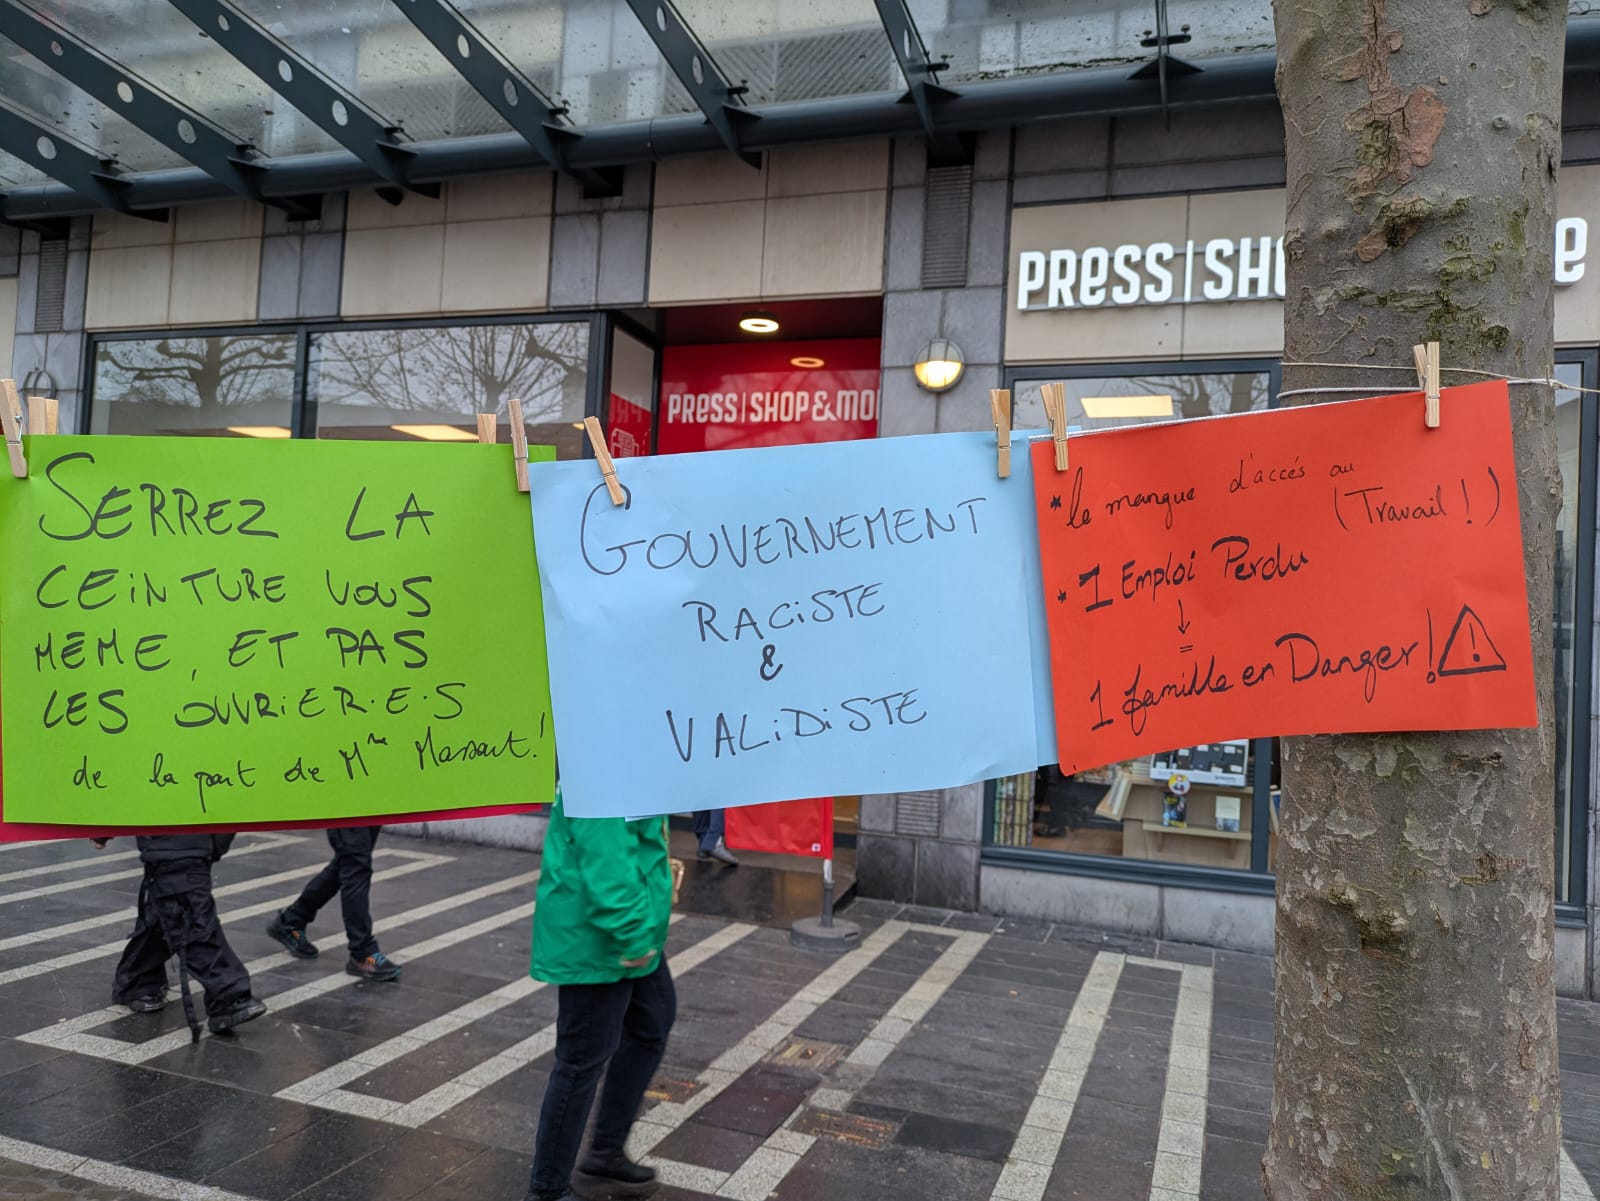 PRESS|SHO
e
PRESS|SHOP&MO
SERREZ LA
CEINTURE VOUS
MÊME, ET PAS
LES OUVRIER·E·S
de la part de Mme Massart!
GOUVERNEMENT
RACISTE
&
VALIDISTE
* le manque d'accés au
(Travail!)
* 1 Emploi Perdu
↓
=
1 famille en Danger!